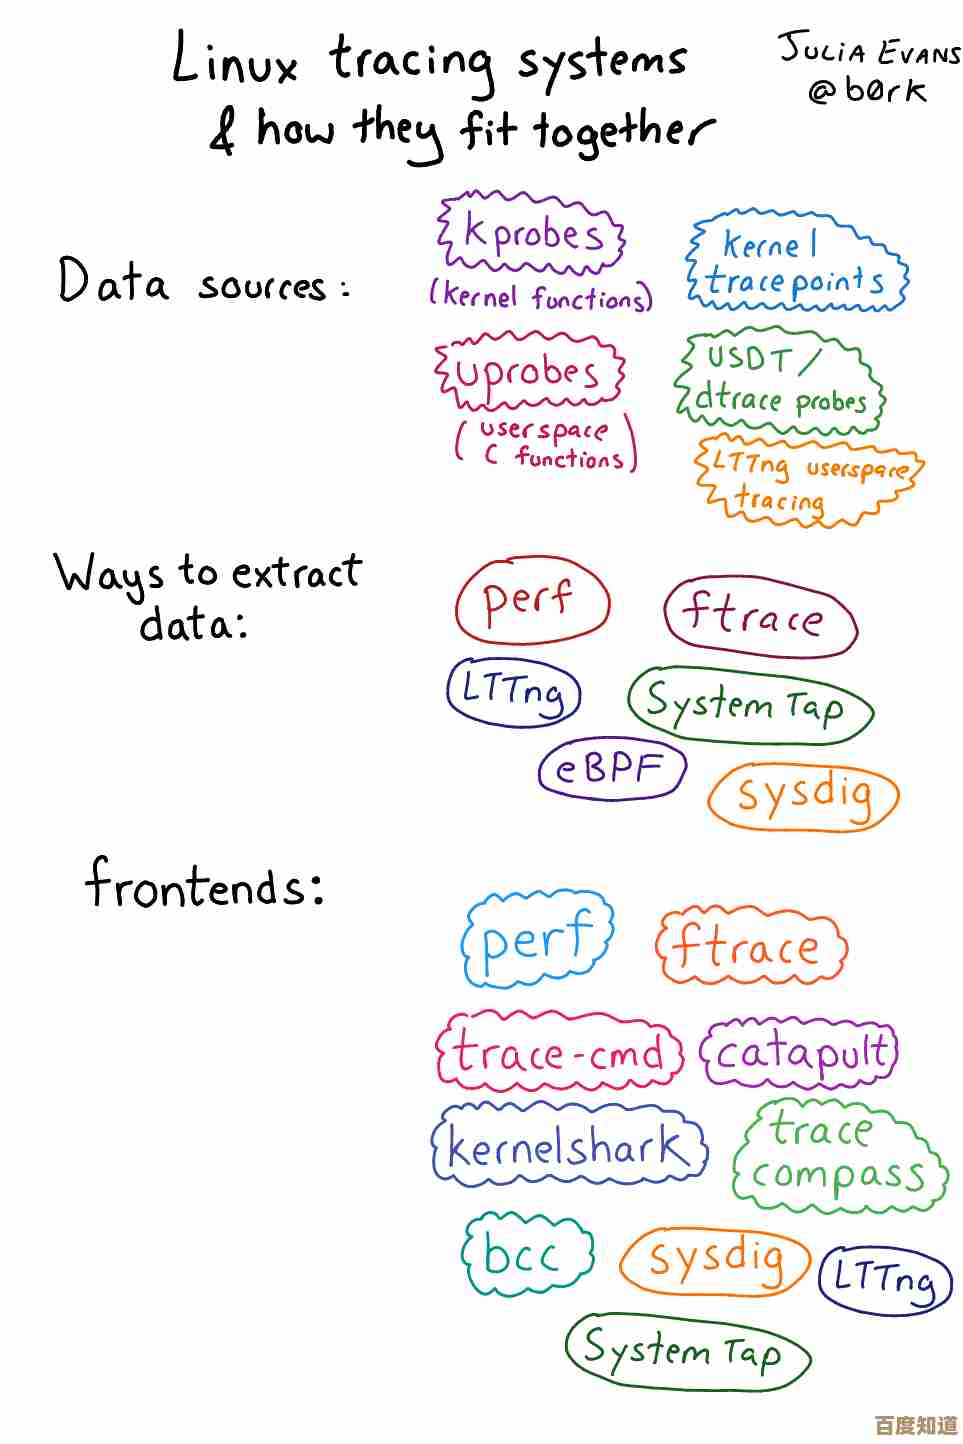 Linux tracing systems
& how they fit together
JULIA EVANS
@b0rk
Data sources:
kprobes
(kernel functions)
kernel
tracepoints
uprobes
(userspace
C functions)
USDT/
dtrace probes
LTTng userspace
tracing
Ways to extract
data:
perf
ftrace
LTTng
System Tap
eBPF
sysdig
frontends:
perf
ftrace
trace-cmd
catapult
kernelshark
trace
compass
bcc
sysdig
LTTng
System Tap
百度知道